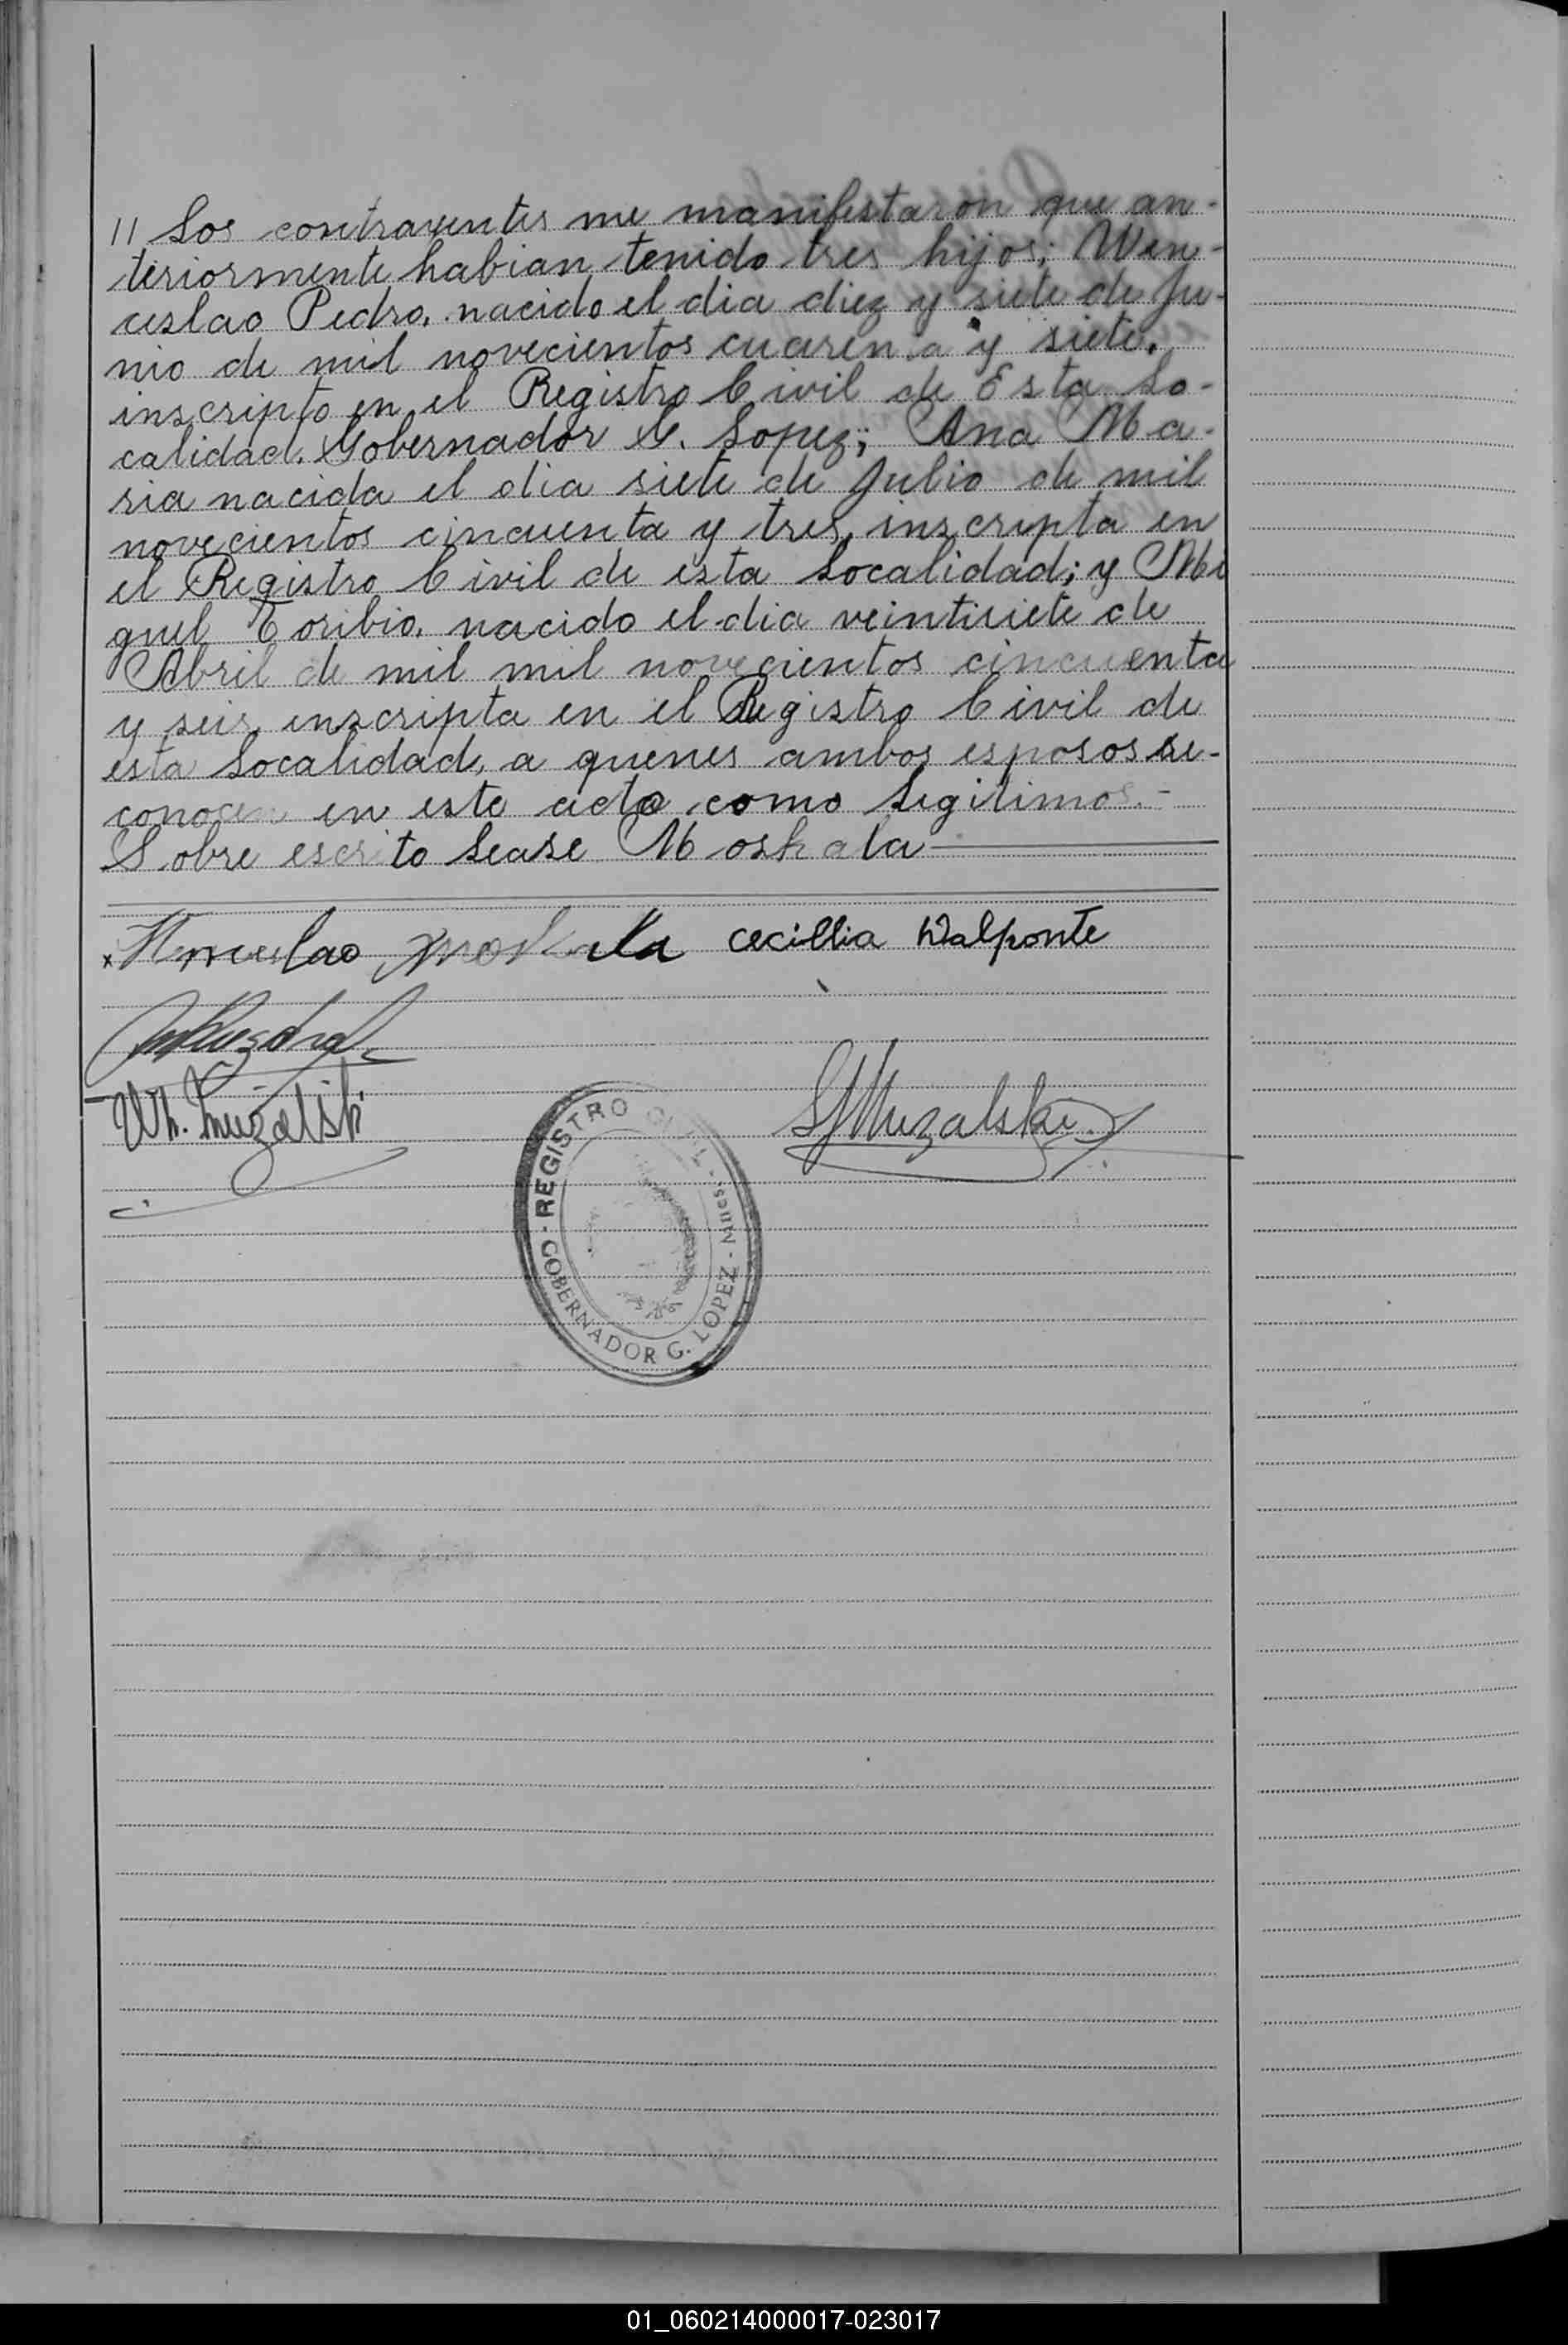 // Los contrayentes me manifestaron que an-
teriormente habian tenido tres hijos; Wen-
ceslao Pedro, nacido el dia diez y siete de Ju-
nio de mil novecientos cuarenta y siete,
inscripto en el Registro Civil de Esta Lo-
calidad, Gobernador G. Lopez; Ana Ma-
ria nacida el dia siete de Julio de mil
novecientos cincuenta y tres, inscripta en
el Registro Civil de esta Localidad; y Mi
guel Toribio, nacido el dia veintisiete de
Abril de mil mil novecientos cincuenta
y seis, inscripta en el Registro Civil de
esta Localidad, a quenes ambos esposos re-
conocen en este acto como Legitimos.-
Sobre escrito Lease Moskala
x Wenceslao Moskala cecillia Dalponte
Muzalski
REGISTRO CIVIL - Mnes.
GOBERNADOR G. LOPEZ
01_060214000017-023017